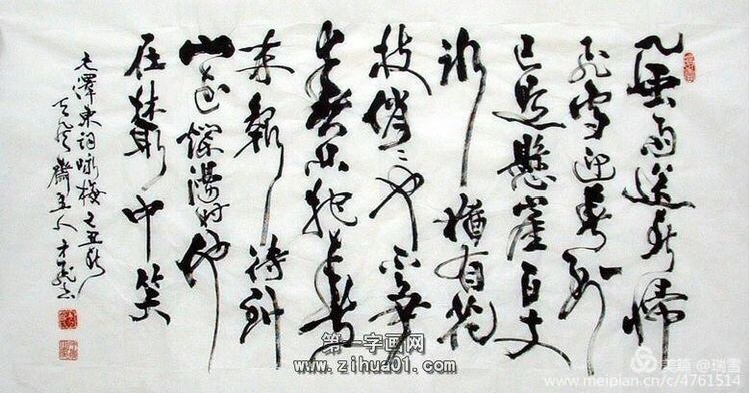 風雨送春歸
飛雪迎春到
已是懸崖百丈
冰猶有花
枝俏〻也不争
春只把春
来報待到
山花爛漫时他
在叢中笑
毛澤東詞咏梅己丑秋
齋主人
第一字画网
www.zihua01.com
美篇 @瑞雪
www.meipian.cn/c/4761514